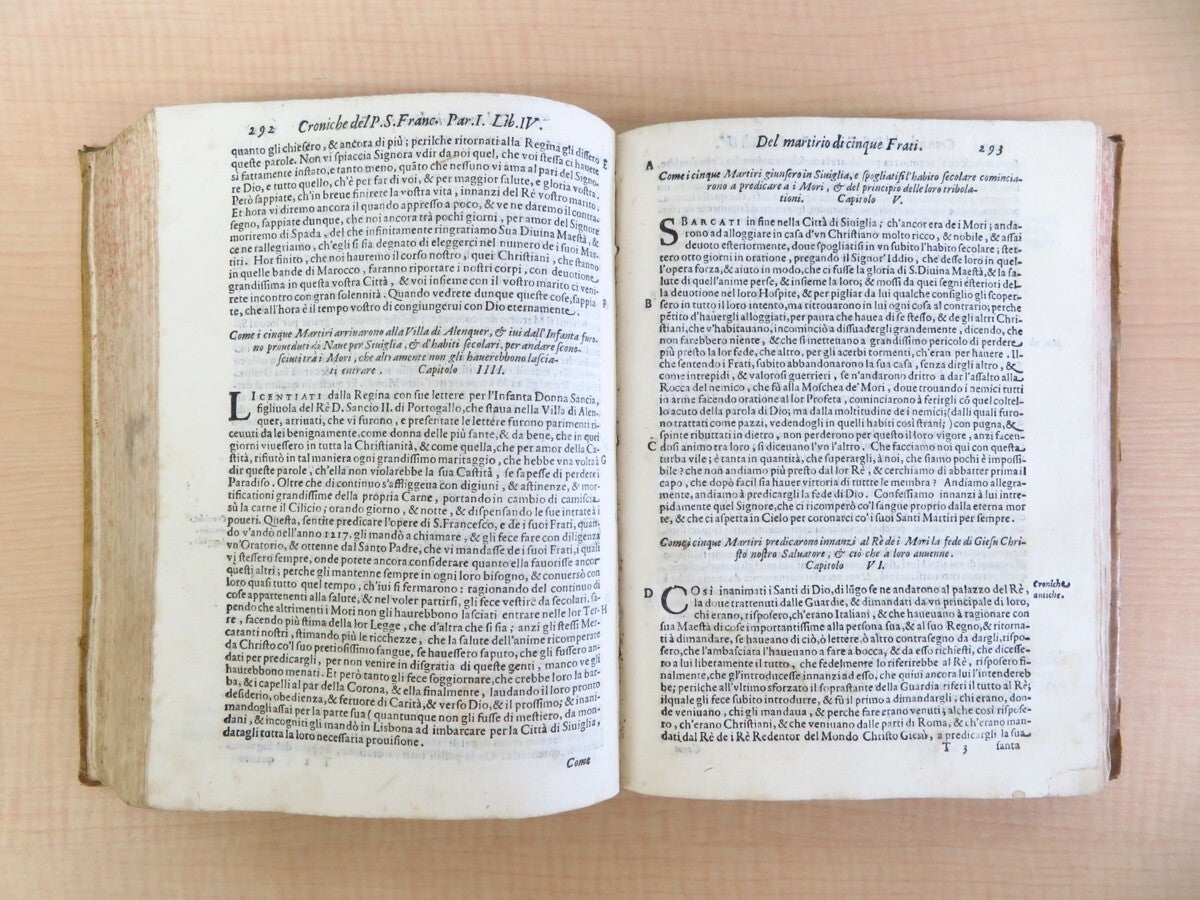 292 Croniche del P. S. Franc. Par. I. Lib. IV.
quanto gli chiesero, & ancora di più; perilche ritornati alla Regina gli dissero E
queste parole. Non vi spiaccia Signora vdir da noi quel, che voi stessa ci hauete
sì fattamente instato, e tanto meno, quãto che nessuno vi ama al pari del Signo-
re Dio, e tutto quello, ch'è per far di voi, & per maggior salute, e gloria vostra.
Però sappiate, ch'in breue finirete la vostra vita, innanzi del Rè vostro marito.
Et hora vi diremo ancora il quando appresso a poco, & ve ne daremo il contra-
segno, sappiate dunque, che noi ancora trà pochi giorni, per amor del Signore
moriremo di Spada, del che infinitamente ringratiamo Sua Diuina Maestà, &
ce ne rallegriamo, ch'egli si sia degnato di eleggerci nel numero de i suoi Mar-
tiri. Hor finito, che noi hauremo il corso nostro, quei Christiani, che stanno
in quelle bande di Marocco, faranno riportare i nostri corpi, con deuotione
grandissima in questa vostra Città, & voi insieme con il vostro marito ci veni-
rete incontro con gran solennità. Quando vedrete dunque queste cose, sappia- F
te, che all'hora è il tempo vostro di congiungerui con Dio eternamente.
Come i cinque Martiri arriuarono alla Villa di Alenquer, & iui dall'Infanta furo-
no proueduti di Naue per Siuiglia, & d'habiti secolari, per andare scono-
sciuti trà i Mori, che altramente non gli hauerebbono lascia-
ti entrare. Capitolo IIII.
LICENTIATI dalla Regina con sue lettere per l'Infanta Donna Sancia,
figliuola del Rè D. Sancio II. di Portogallo, che staua nella Villa di Alen-
quer, arriuati, che vi furono, e presentate le lettere furono parimenti ri-
ceuuti da lei benignamente, come donna delle più sante, & da bene, che in quei
giorni viuessero in tutta la Christianità, & come quella, che per amor della Ca-
stità, rifiutò in tal maniera ogni grandissimo maritaggio, che hebbe vna volta à G
dir queste parole, ch'ella non violarebbe la sua Castità, se sapesse di perdere il
Paradiso. Oltre che di continuo s'affliggeua con digiuni, & astinenze, & mor-
tificationi grandissime della propria Carne, portando in cambio di camiscia
sù la carne il Cilicio; orando giorno, & notte, & dispensando le sue intrate à i
poueri. Questa, sentite predicare l'opere di S. Francesco, e de i suoi Frati, quan-
do v'andò nell'anno 1217. gli mandò a chiamare, & gli fece fare con diligenza
vn'Oratorio, & ottenne dal Santo Padre, che vi mandasse de i suoi Frati, i quali
vi stessero sempre, onde potete ancora considerare quanto ella fauorisse ancor
questi altri; perche gli mantenne sempre in ogni loro bisogno, & conuersò con
loro quasi tutto quel tempo, ch'iui si fermarono: ragionando del continuo di
cose appartenenti alla salute, & nel voler partirsi, gli fece vestire da secolari, sa-
pendo che altrimenti i Mori non gli hauerebbono lasciati entrare nelle lor Ter- H
re, facendo più stima della lor Legge, che d'altra che si sia; anzi gli stessi Mer-
catanti nostri, stimando più le ricchezze, che la salute dell'anime ricomperate
da Christo co'l suo pretiosissimo sangue, se hauessero saputo, che gli fussero an-
dati per predicargli, per non venire in disgratia di queste genti, manco ve gli
haurebbono menati. Et però tanto gli fece soggiornare, che crebbe loro la bar-
ba, & i capelli al par della Corona, & ella finalmente, laudando il loro pronto
desiderio, obedienza, & feruore di Carità, & verso Dio, & il prossimo; & inani-
mandogli assai per la parte sua (quantunque non gli fusse di mestiero, da mon-
dani, & incogniti gli mandò in Lisbona ad imbarcare per la Città di Siuiglia,
datagli tutta la loro necessaria prouisione.
Come
Del martirio di cinque Frati. 293
A
Come i cinque Martiri giunsero in Siuiglia, e spogliatisi l'habito secolare comincia-
rono a predicare a i Mori, & del principio delle loro tribola-
tioni. Capitolo V.
SBARCATI in fine nella Città di Siuiglia; ch'ancor era de i Mori; anda-
rono ad alloggiare in casa d'vn Christiano molto ricco, & nobile, & assai
deuoto esteriormente, doue spogliatisi in vn subito l'habito secolare; stet-
tero otto giorni in oratione, pregando il Signor'Iddio, che desse loro in quel-
l'opera forza, & aiuto in modo, che ci fusse la gloria di S. Diuina Maestà, & la sa-
lute di quell'anime perse, & insieme la loro; & mossi da quei segni esteriori del-
la deuotione nel loro Hospite, & per pigliar da lui qualche consiglio gli scoper-
B sero in tutto il loro intento, ma ritrouarono in lui ogni cosa al contrario; perche
pẽtito d'hauergli alloggiati, per paura che hauea di se stesso, & de gli altri Chri-
stiani, che v'habitauano, incominciò a dissuadergli grandemente, dicendo, che
non farebbero niente, & che si metteuano a grandissimo pericolo di perdere
più presto la lor fede, che altro, per gli acerbi tormenti, ch'eran per hauere. Il-
che sentendo i Frati, subito abbandonarono la sua casa, senza dirgli altro, &
come intrepidi, & valorosi guerrieri, se n'andarono dritto a dar l'assalto alla
Rocca del nemico, che fù alla Moschea de' Mori, doue trouando i nemici tutti
in arme facendo oration al lor Profeta, cominciarono à ferirgli cõ quel coltel-
lo acuto della parola di Dio; ma dalla moltitudine de i nemici; (dalli quali furo-
no trattati come pazzi, vedendogli in quelli habiti così strani;) con pugna, &
spinte ributtati in dietro, non perderono per questo il loro vigore, anzi facen-
C dosi animo tra loro, si diceuano l'vn l'altro. Che facciamo noi qui con questa
turba vile; è tanta in quantità, che superargli, à noi, che siamo pochi è impossi-
bile? che non andiamo più presto dal lor Rè, & cerchiamo di abbatter prima il
capo, che dopò facil sia hauer vittoria di tuttte le membra? Andiamo allegra-
mente, andiamo à predicargli la fede di Dio. Confessiamo innanzi à lui intre-
pidamente quel Signore, che ci ricomperò co'l sangue proprio dalla eterna mor
te, & che ci aspetta in Cielo per coronarci co' i suoi Santi Martiri per sempre.
Come i cinque Martiri predicarono innanzi al Rè de i Mori la fede di Giesu Chri-
sto nostro Saluatore, & ciò che a loro auuenne.
Capitolo VI.
D COSI inanimati i Santi di Dio, di lũgo se ne andarono al palazzo del Rè, Croniche
la doue trattenuti dalle Guardie, & dimandati da vn principale di loro, antiche.
chi erano, risposero, ch'erano Italiani, & che haueuano à ragionare con
sua Maestà di cose importantissime alla persona sua, & al suo Regno, & ritorna-
ti à dimandare, se haueano di ciò, ò lettere, ò altro contrasegno da dargli, rispo-
sero, che l'ambasciata l'haueuano a fare a bocca, & da esso richiesti, che dicesse-
ro a lui liberamente il tutto, che fedelmente lo riferirebbe al Rè, risposero fi-
nalmente, che gl'introducesse innanzi ad esso, che quiui ancora lui l'intendereb
be; perilche all'vltimo sforzato il soprastante della Guardia riferì il tutto al Rè;
il quale gli fece subito introdurre, & fù il primo a dimandargli, chi erano, don-
de veniuano, chi gli mandaua, & perche fare erano venuti; alche così rispose-
ro, ch'erano Christiani, & che veniuano dalle parti di Roma, & ch'erano man-
dati dal Rè de i Rè Redentor del Mondo Christo Giesù, a predicargli la sua
T 3 santa